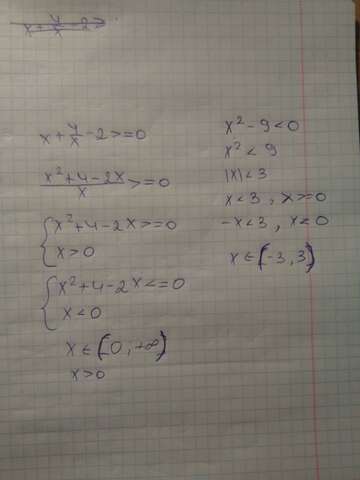 x + 4/x - 2 >=
x + 4/x - 2 >= 0
(x² + 4 - 2x)/x >= 0
{ x² + 4 - 2x >= 0
x > 0
{ x² + 4 - 2x <= 0
x < 0
x ∈ (0, +∞)
x > 0
x² - 9 < 0
x² < 9
|x| < 3
x < 3 , x >= 0
-x < 3 , x < 0
x ∈ (-3, 3)